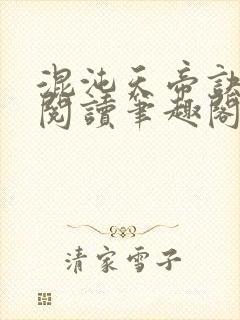 混沌天帝訣
閱讀筆趣閣
清家雪子